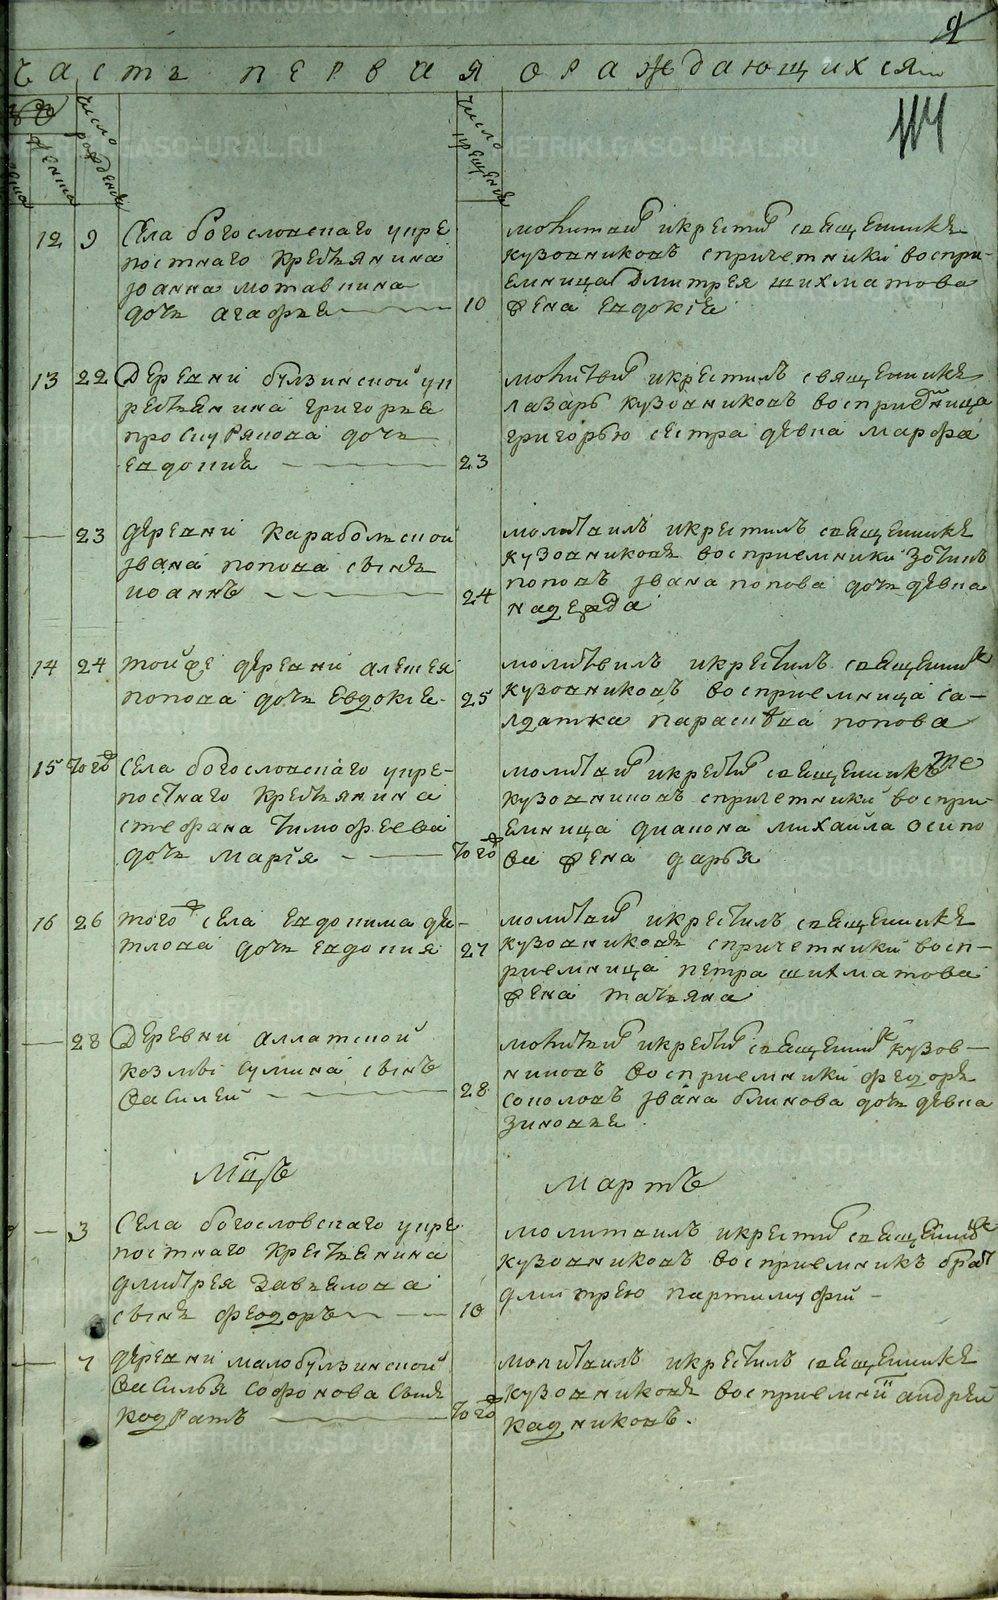 9
Часть первая ораждающихся
114
число рождения
число крещения
12 9 Села богословскаго упре
постнаго крестьянина
Іоанна мотавкина
дочь агафья
молитвил и крестил священникъ
кузовниковъ спричетники воспри-
емница Дмитрея шихматова
10 жена евдокія
13 22 Деревни булзинской уп
рестьянина григорья
дочь
евдокия
молитвил и крестилъ священникъ
лазарь кузовниковъ восприемница
григорью сестра девка марфа
23
23 деревни карабольской
Івана попова сынъ
иоаннъ
молитвилъ и крестилъ священникъ
кузовниковъ восприемники зотикъ
поповъ Івана попова дочь девка
24 надежда
14 24 той же деревни алексея
попова дочь Евдокія
молитвилъ и крестилъ священник
25 кузовниковъ восприемница са-
лдатка параскева попова
15 того ж села богословскаго упре-
постнаго крестьянина
стефана тимофеева
дочь марія
молитвил и крестил священникъ же
кузовниковъ спричетники воспри-
емница диакона михайла осипо
того ж ва жена дарья
16 26 того ж села евдокима де-
тлова дочь евдокия
молитвил и крестилъ священникъ
27 кузовниковъ спричетники восп-
риемница петра шихматова
жена татьяна
28 Деревни аллатской
козмы сумина сынъ
василей
молитвил и крестил священник кузов-
никовъ восприемники федоръ
28 соколовъ Івана блинова дочь девка
зиновья
Мцъ Мартъ
3 Села богословскаго упре
постнаго крестьянина
дмитрея завьялова
сынъ феодоръ
молитвилъ и крестил священник
кузовниковъ восприемникъ брат
10 дмитрею
7 деревни малобулзинской
василья софонова сынъ
кодратъ
молитвилъ и крестилъ священникъ
того ж кузовниковъ восприемник андрей
кадниковъ.
METRIKI.GASO-URAL.RU